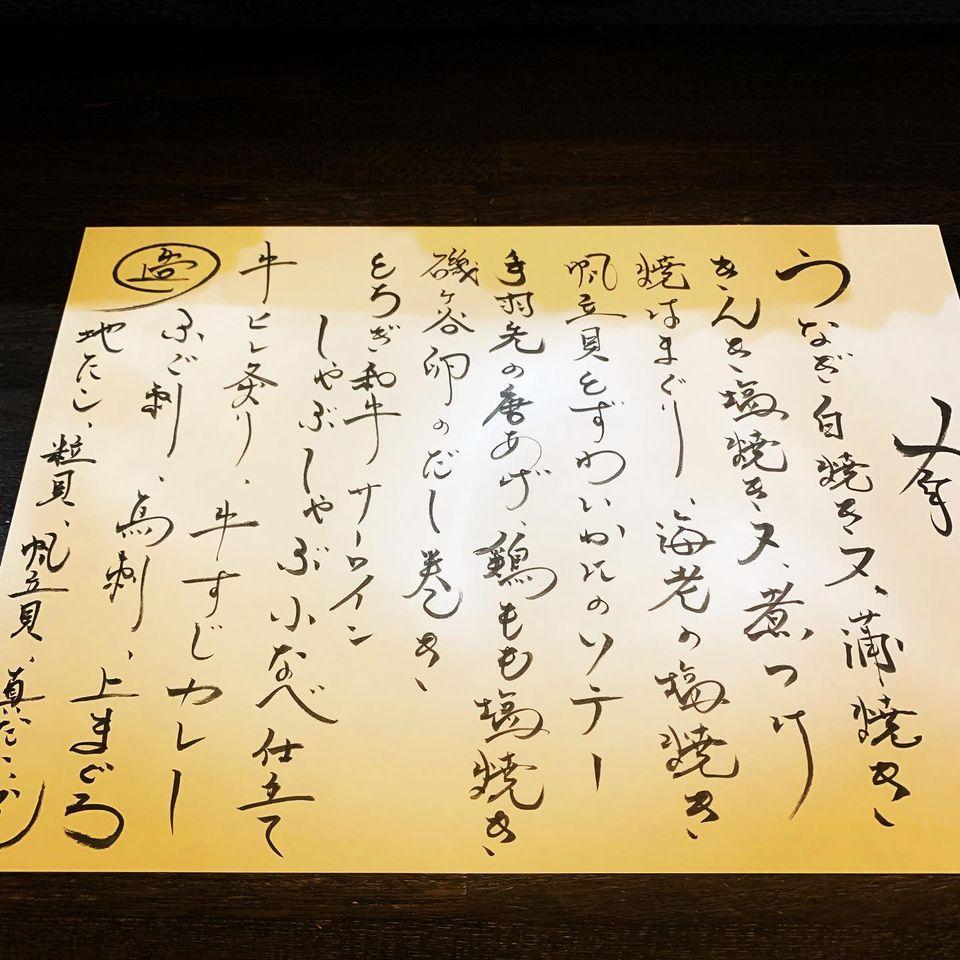 うなぎ白焼き又、蒲焼き
きんき塩焼き又、煮つけ
焼はまぐり、海老の塩焼き
帆立貝とずわいかにのソテー
手羽先の唐あげ、鶏もも塩焼き
磯ヶ谷卵のだし巻き
とちぎ和牛サーロイン
しゃぶしゃぶ小なべ仕立て
牛ヒレ炙り、牛すじカレー
ふぐ刺、馬刺、上まぐろ
粒貝、帆立貝、